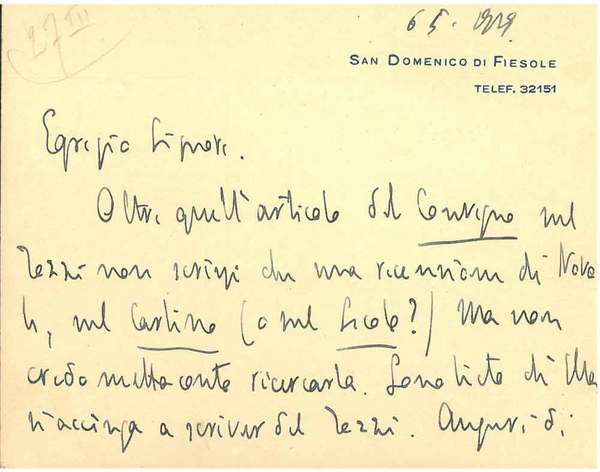 27 III
6 5. 1929
SAN DOMENICO DI FIESOLE
TELEF. 32151
Egregio Signore.
Oltre quell'articolo del Convegno sul
Tozzi non scrissi che una recensione di Nova
le, nel Carlino (o nel Secolo?) Ma non
credo metta conto ricercarla. Sono lieto ch'Ella
s'accinga a scriver del Tozzi. Auguri di